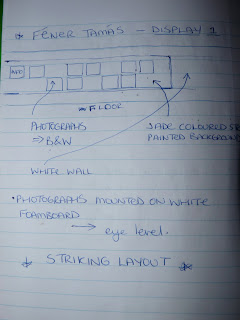 * FÉNER TAMÁS - DISPLAY 1
INFO
FLOOR
PHOTOGRAPHS
⇒ B&W
JADE COLOURED
PAINTED BACKGROUND
WHITE WALL
• PHOTOGRAPHS MOUNTED ON WHITE
FOAMBOARD
→ eye level.
* STRIKING LAYOUT *